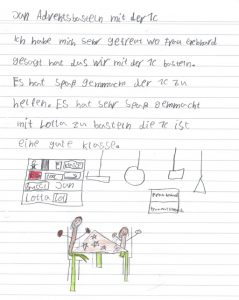 Jan Adventsbasteln mit der 1c
Ich habe mich sehr gefreut wo Frau
gesagt hat das wir mit der 1c basteln.
Es hat Spaß gemmacht der 1c zu
helfen. Es hat sehr Spaß gemmacht
mit Lotta zu basteln die 1c ist
eine gute Klasse.
Jan
Lotta